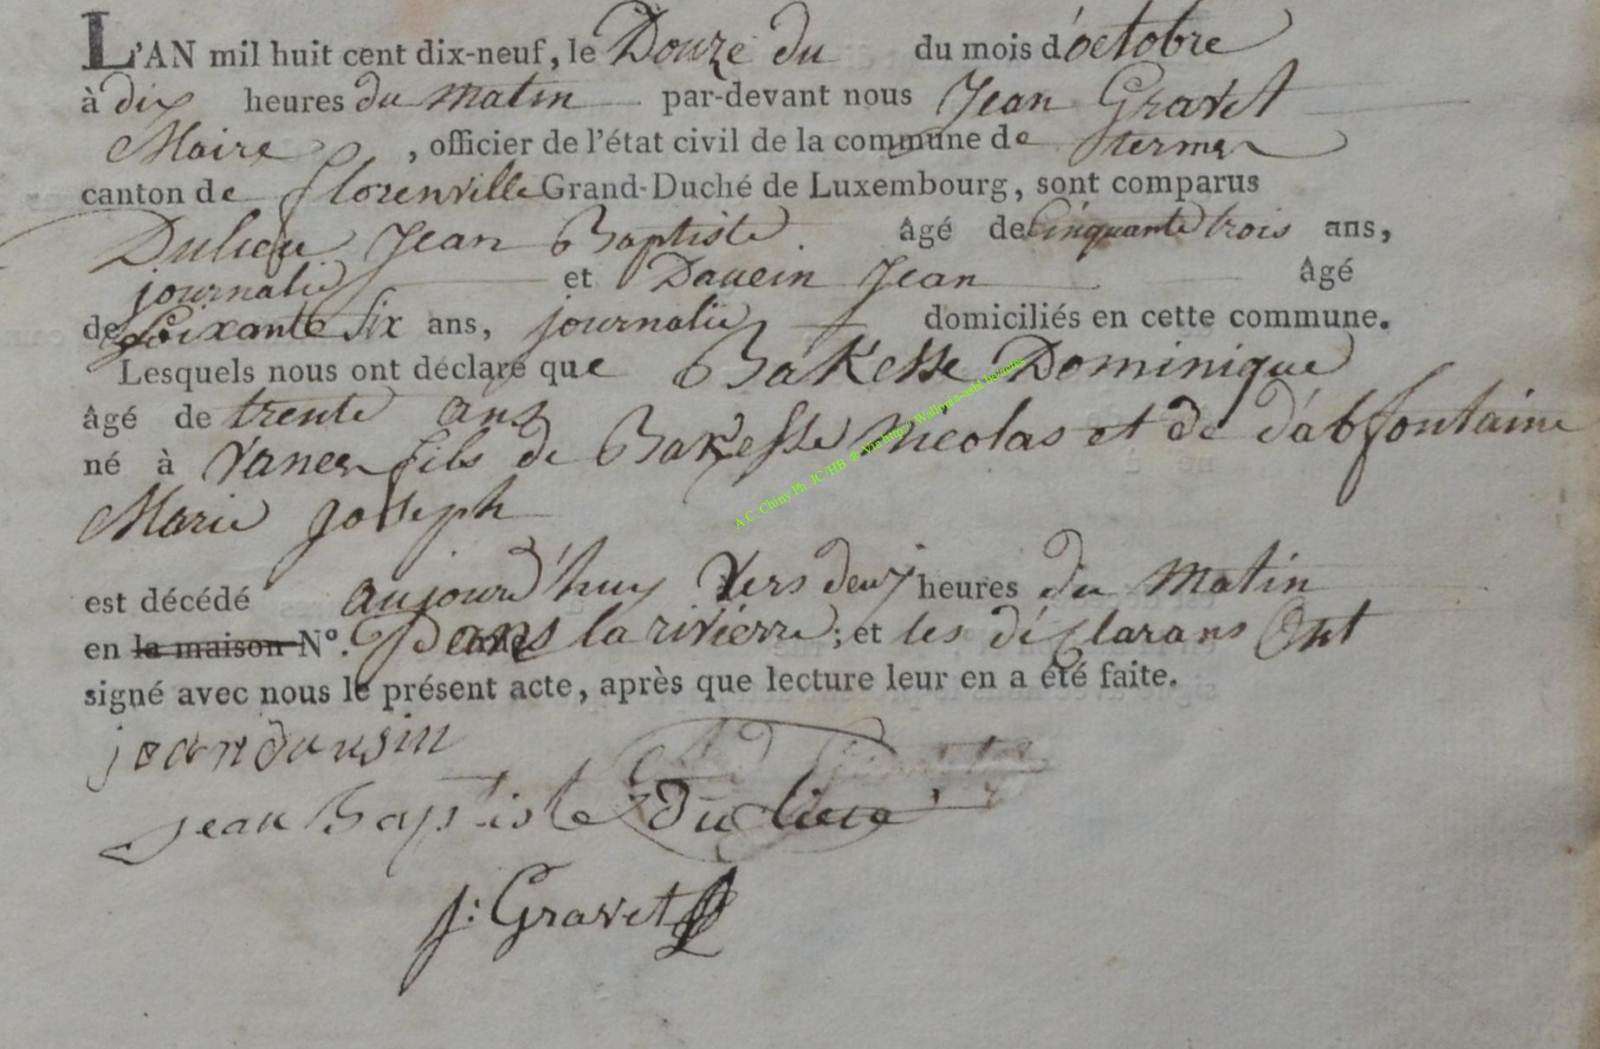 L'AN mil huit cent dix-neuf, le Douze du du mois d'octobre
à dix heures du matin par-devant nous Jean Gravet
Maire , officier de l'état civil de la commune de termes
canton de florenville Grand-Duché de Luxembourg, sont comparus
Dulieu Jean Baptiste . âgé de Cinquante trois ans,
journalie et Dauein Jean âgé
de Soixante Six ans, journalie domiciliés en cette commune.
Lesquels nous ont déclaré que Bakesse Dominique
âgé de trente ans
né à fils de Bakesse Nicolas et de d'abfontaine
Marie Joseph
est décédé aujourd'huy Vers deux heures du Matin
en la maison N°. Dans la rivierre ; et les déclarans Ont
signé avec nous le présent acte, après que lecture leur en a été faite.
jean dausin
jean Baptiste du lieu
j: Gravet
A.C. Chiny Ph. JC/HB